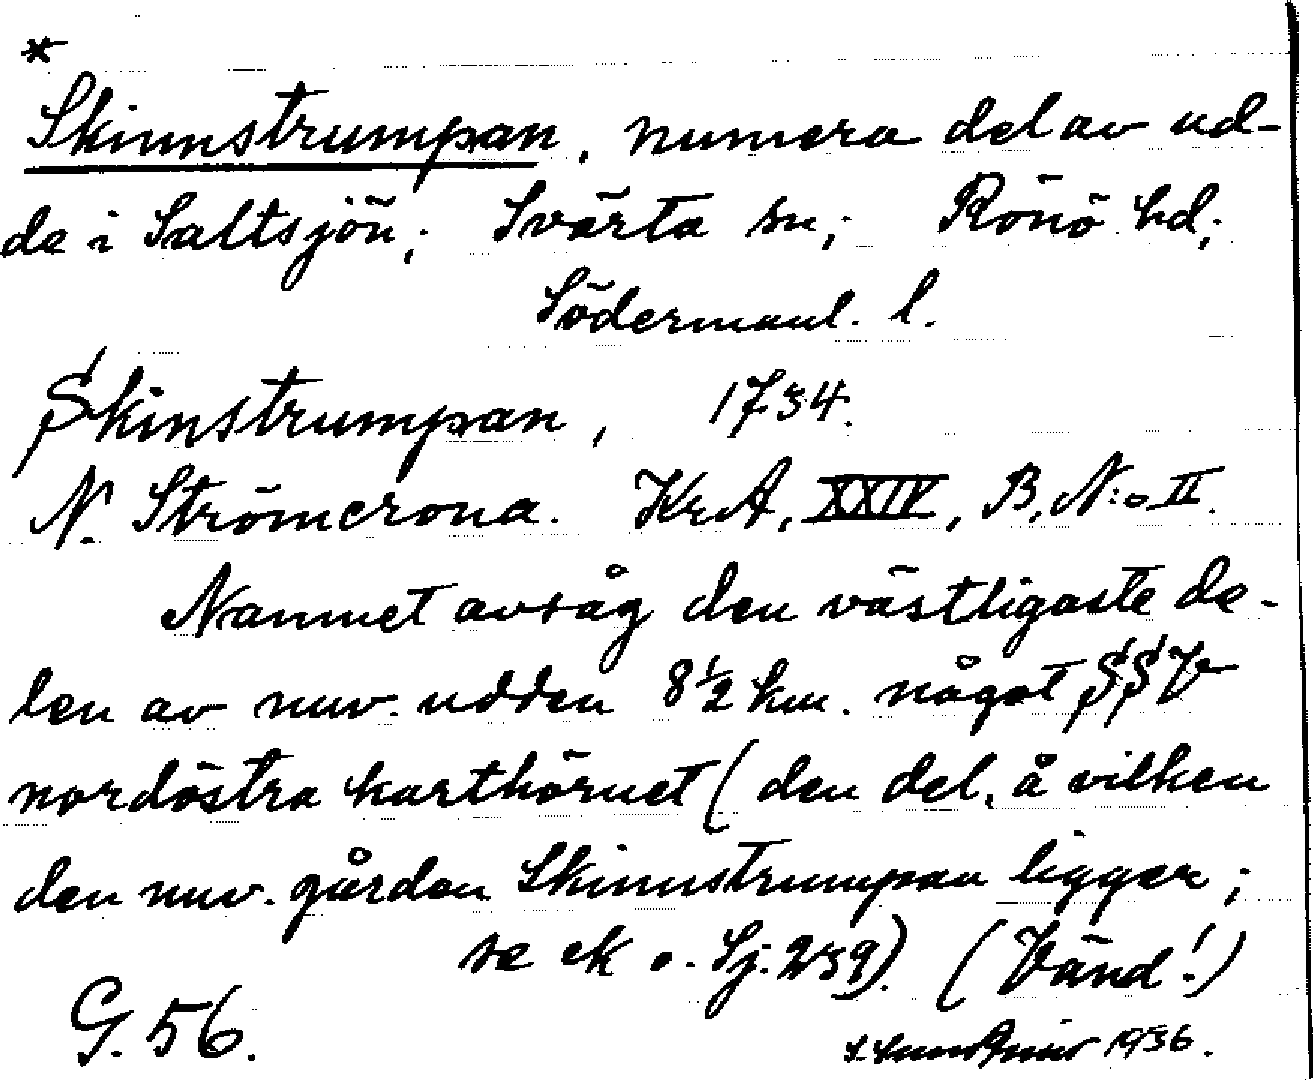 *
Skinnstrumpan, numera del av ud-
de i Saltsjön; Svärta sn; Rönö hd;
Södermanl. l.
Skinstrumpan, 1734.
N. Strömcrona. KrA, XXIV, B, N:o II.
Namnet avsåg den västligaste de-
len av nuv. udden 8 1/2 km. något SSV
nordöstra karthörnet (den del, å vilken
den nuv. gården Skinnstrumpan ligger;
se ek o. Sj. 239). (Vänd!)
G. 56.
1936.